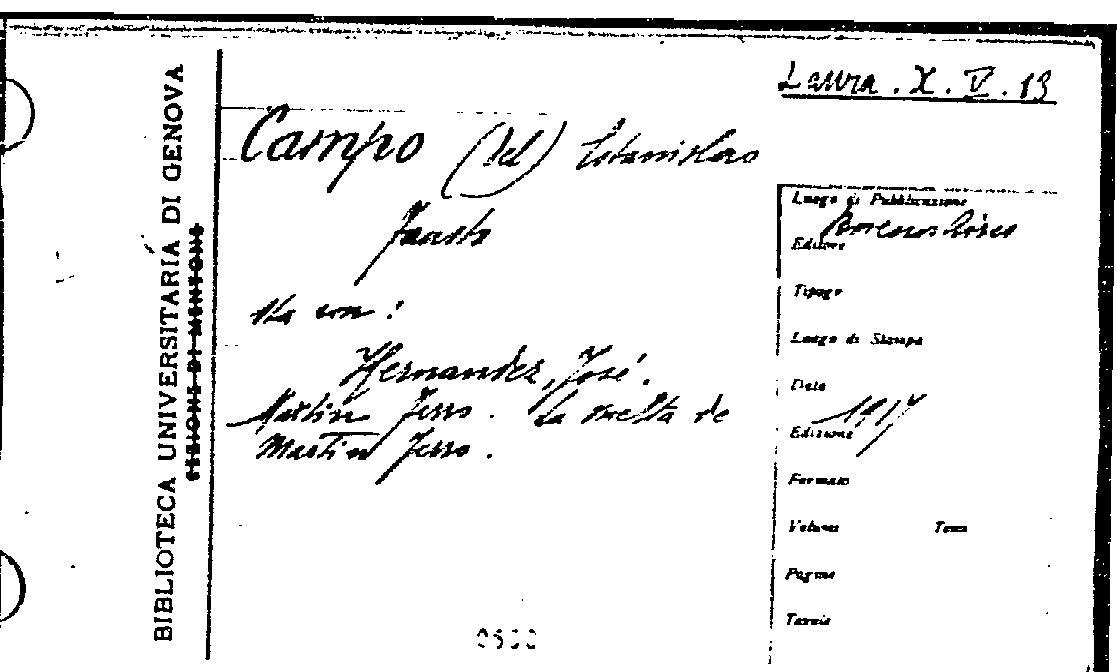 Laura . X . V . 13
Campo (del) Estanislao
Fausto
Sta con :
Hernandez, José .
Martin Ferro . La vuelta de
Martin Ferro .
BIBLIOTECA UNIVERSITARIA DI GENOVA
Luogo di Pubblicazione
Buenos Aires
Editore
Tipogr
Luogo di Stampa
Data
1917
Edizione
Formato
Volume Tomo
Pagine
Tavole